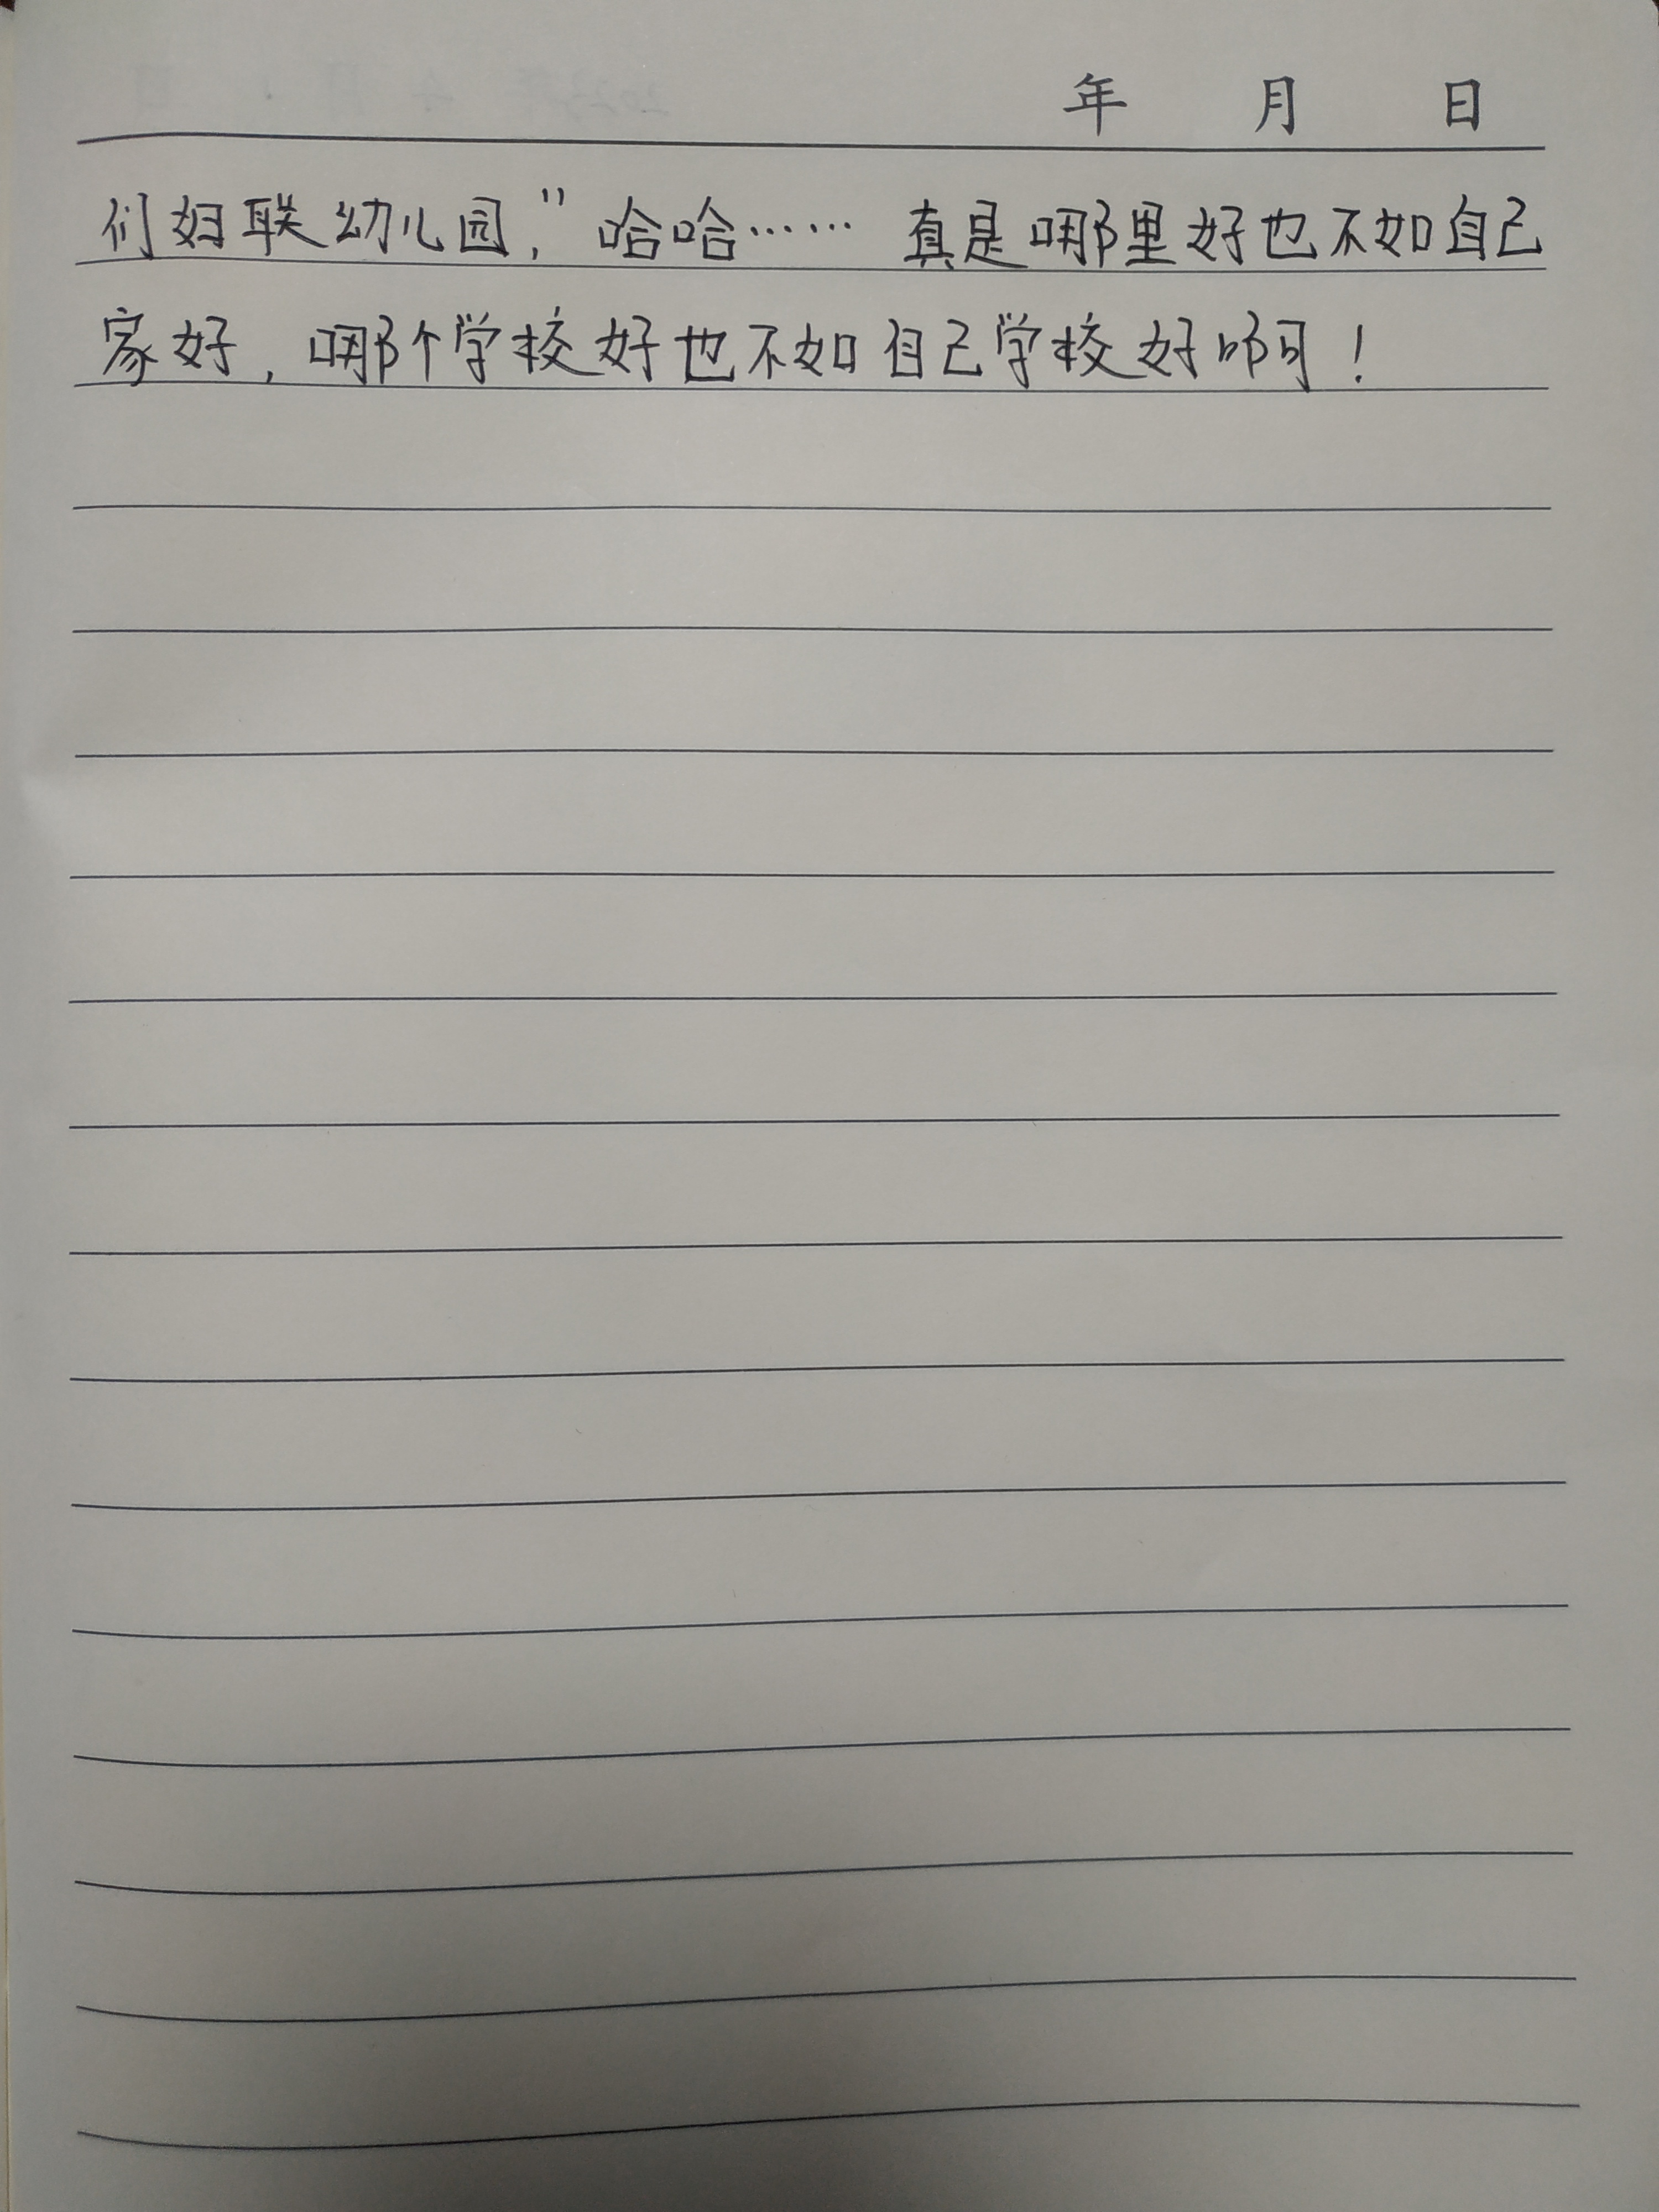 年 月 日
们妇联幼儿园，” 哈哈…… 真是哪里好也不如自己
家好，哪个学校好也不如自己学校好啊！